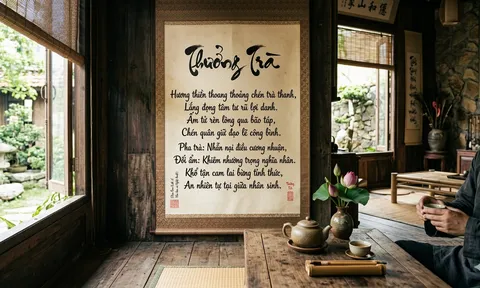 Thưởng Trà
Hương thiền thoang thoảng chén trà thanh,
Lắng đọng tâm tư rũ lợi danh.
Ấm từ rèn lòng qua bão táp,
Chén quân giữ đạo lẽ công bình.
Pha trà: Nhẫn nại điều cương nhuận,
Đối ẩm: Khiêm nhường trọng nghĩa nhân.
Khổ tận cam lai bừng tỉnh thức,
An nhiên tự tại giữa nhân sinh.